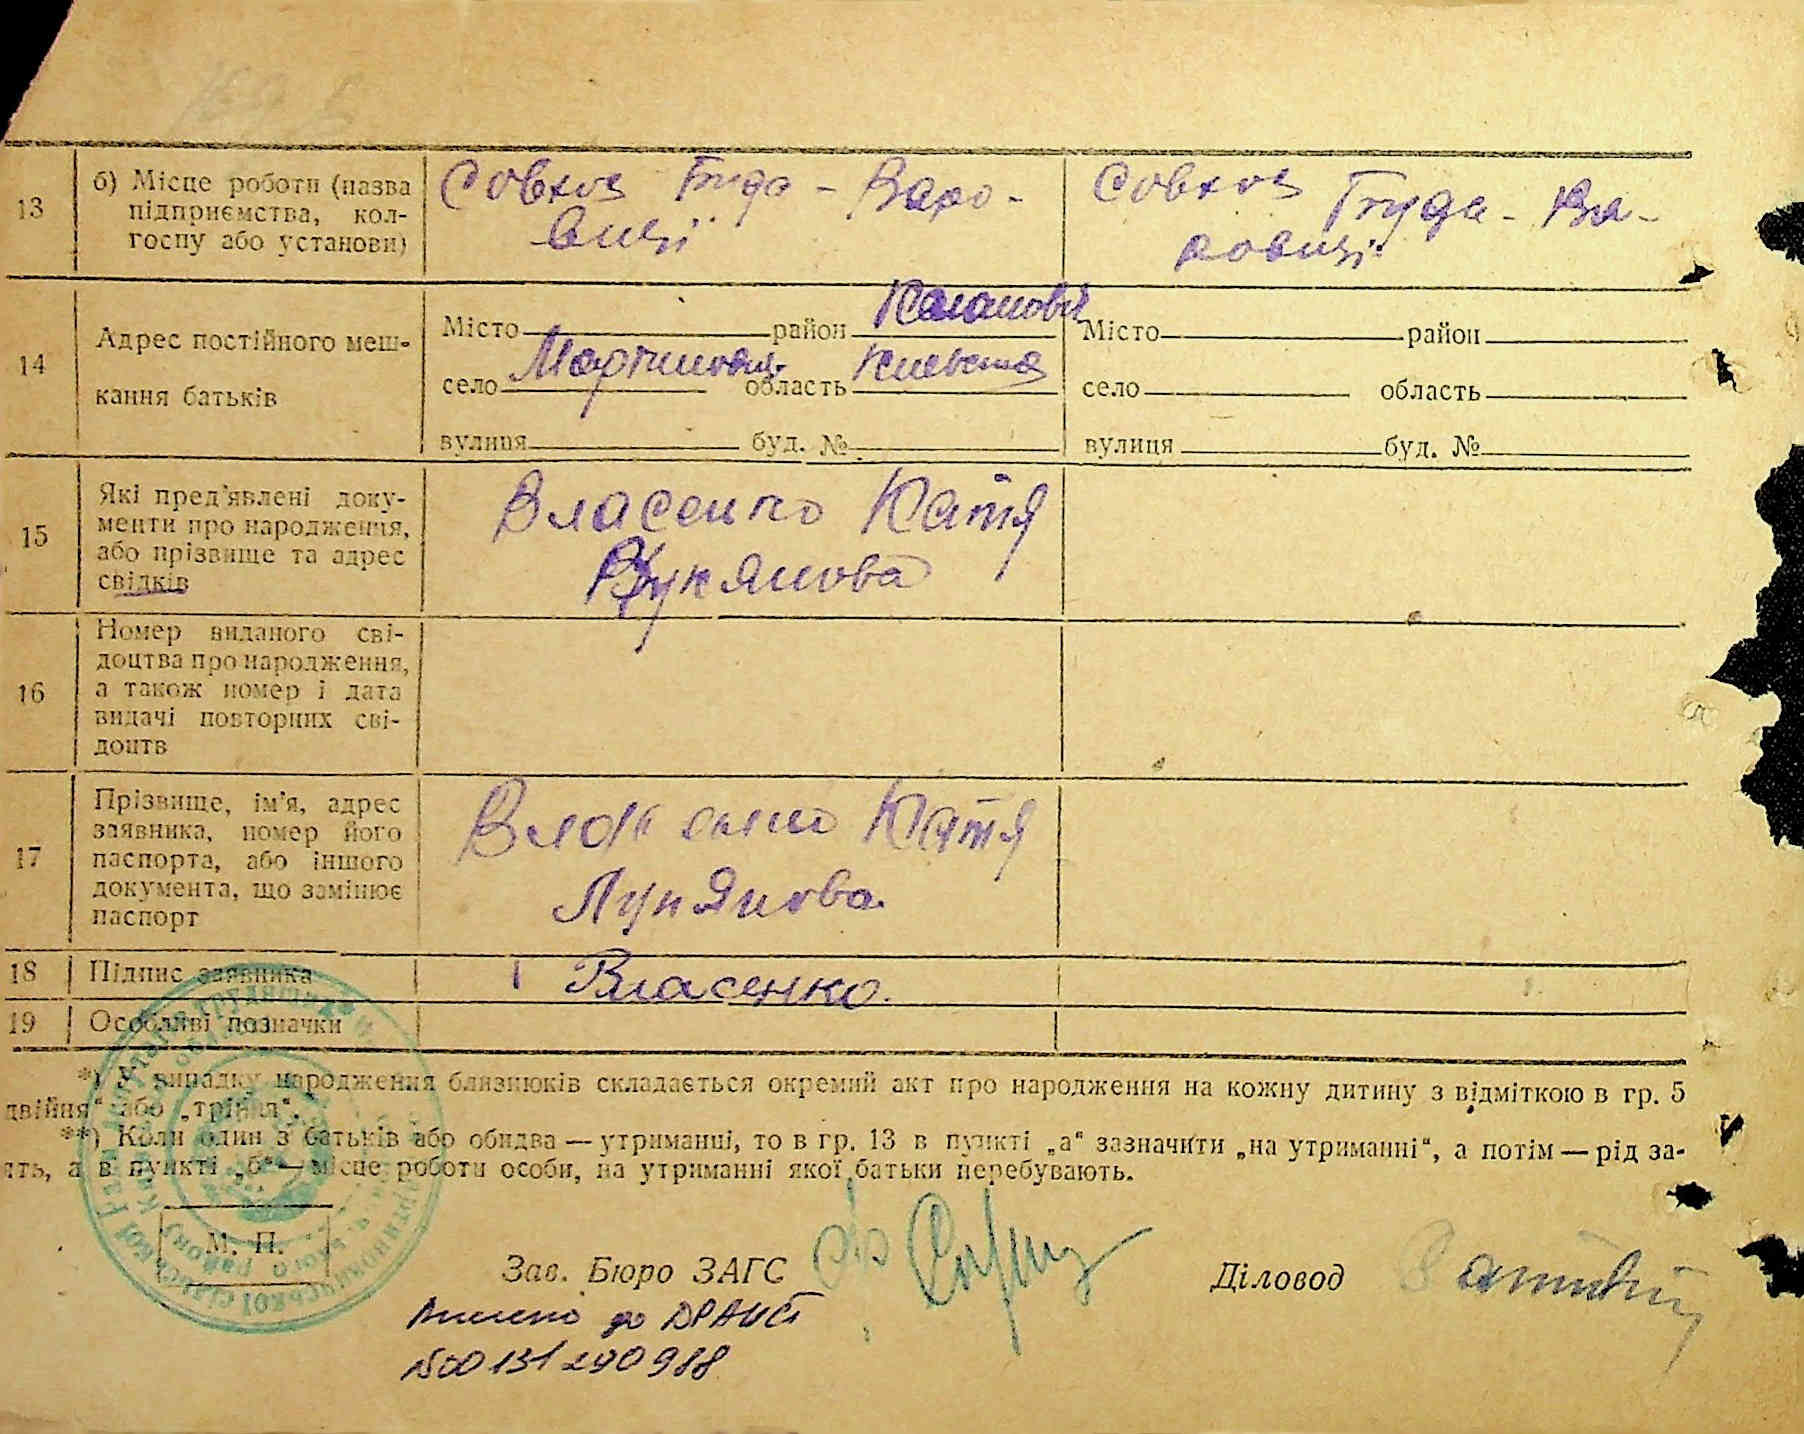 13
б) Місце роботи (назва
підприємства, кол-
госпу або установи)
Совхоз Буда - Варо-
виці
Совхоз Буда - Ва-
ровиці
14
Адрес постійного меш-
кання батьків
Місто район
село Мартинович область Киевська
вулиця буд. №
Місто район
село область
вулиця буд. №
15
Які пред'явлені доку-
менти про народження,
або прізвище та адрес
свідків
Власенко Катя
Лукянова
16
Номер виданого сві-
доцтва про народження,
а також номер і дата
видачі повторних сві-
доцтв
17
Прізвище, ім'я, адрес
заявника, номер його
паспорта, або іншого
документа, що замінює
паспорт
Власенко Катя
Лукянова
18 Підпис заявника Власенко
19 Особливі позначки
*) У випадку народження близнюків складається окремий акт про народження на кожну дитину з відміткою в гр. 5
двійня“ або „трійня“.
**) Коли один з батьків або обидва — утриманці, то в гр. 13 в пункті „а“ зазначити „на утриманні“, а потім — рід за-
ять, а в пункті „б“ — місце роботи особи, на утриманні якої батьки перебувають.
М. П.
Зав. Бюро ЗАГС
Діловод
Внесено до ДРАЦСГ
№00131290988